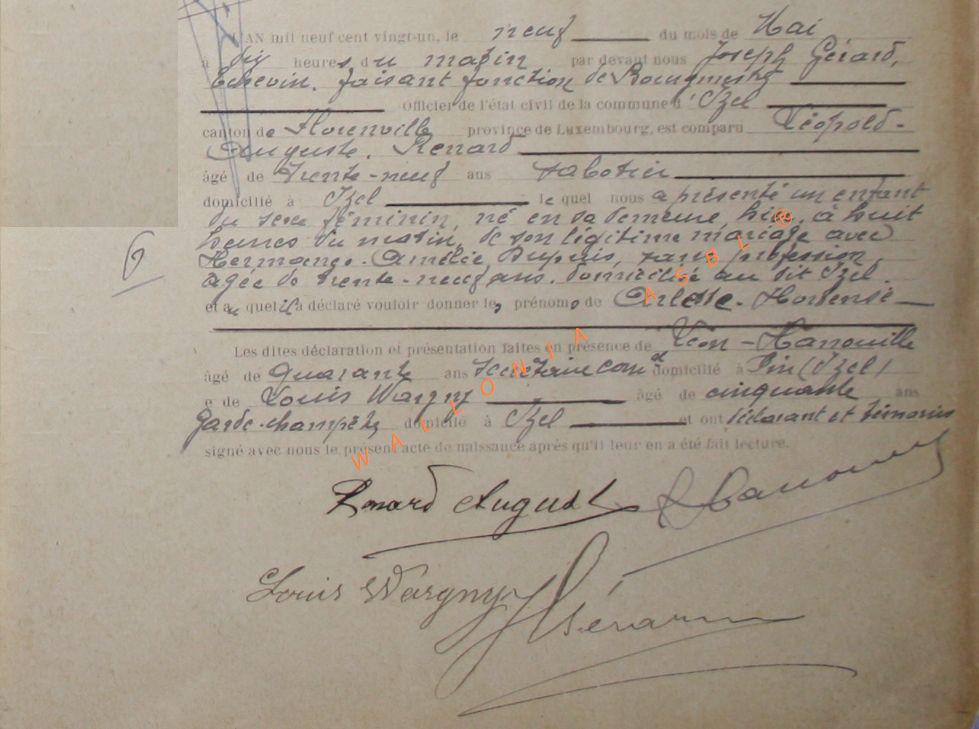 L'AN mil neuf cent vingt-un, le neuf du mois de Mai
à dix heures du matin par devant nous Joseph Gérard,
Echevin, faisant fonction de Bourgmestre
Officier de l'état civil de la commune d'Izel
canton de Florenville province de Luxembourg, est comparu Léopold-
Auguste. Renard
âgé de trente-neuf ans sabotier
domicilié à Izel lequel nous a présenté un enfant
du sexe féminin, né en sa demeure, hier, à huit
heures du matin, de son légitime mariage avec
Hermance-Amélie Dupuis, sans profession,
agée de trente-neuf ans, domiciliée au dit Izel
et auquel il a déclaré vouloir donner les prénoms de Arlette-Hortense
Les dites déclaration et présentation faites en présence de Léon-Hanouille
âgé de quarante ans Secrétaire comal domicilié à Pin (Izel)
e de Louis Wargny âgé de cinquante ans
Garde-champêtre domicilié à Izel et ont déclarant et témoins
signé avec nous le présent acte de naissance après qu'il leur en a été fait lecture.
WALLONIA ASBL @
Renard August
L Hanouille
Louis Wargny
J Gérard